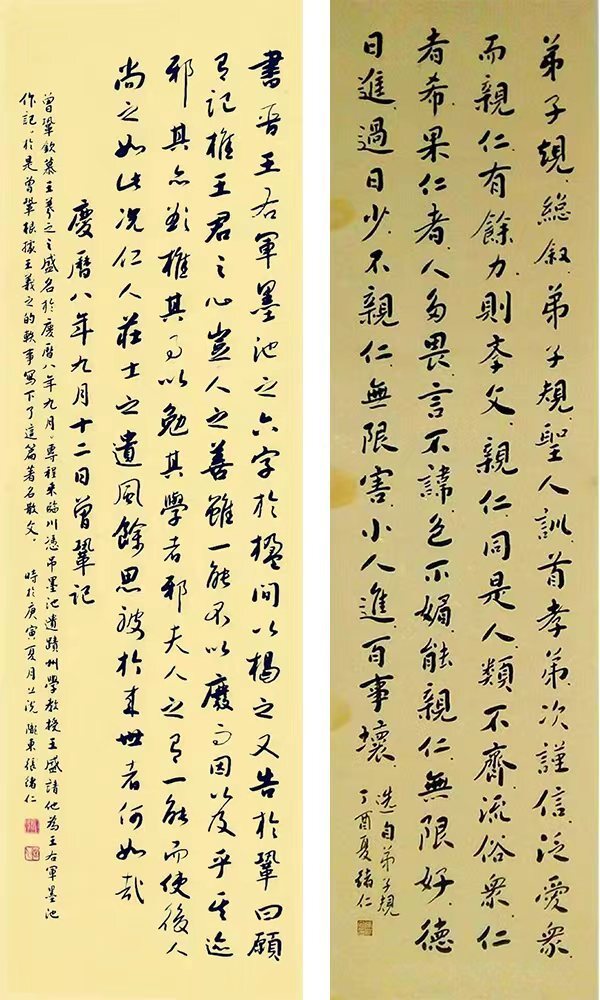 弟子規總叙弟子規聖人訓首孝弟次謹信泛愛衆
而親仁有餘力則孝父親仁同是人類不齊流俗衆仁
者希果仁者人多畏言不諱色不媚能親仁無限好德
日進過日少不親仁無限害小人進百事壞
選自弟子規
丁酉夏緒仁
書晉王右軍墨池之六字於楹間以楬之又告於鞏曰願
有記推王君之心豈人之善雖一能不以廢而因以及乎其迹
邪其亦欲推其事以勉其學者邪夫人之有一能而使後人
尚之如此況仁人莊士之遺風餘思被於來世者何如哉
慶曆八年九月十二日曾鞏記
曾鞏欽慕王羲之之盛名於慶曆八年九月專程來臨川憑吊墨池遺蹟州學教授王盛請他為王右軍墨池
作記於是曾鞏根據王羲之的軼事寫下了這篇著名散文 時於庚寅夏月上浣隴東張緒仁